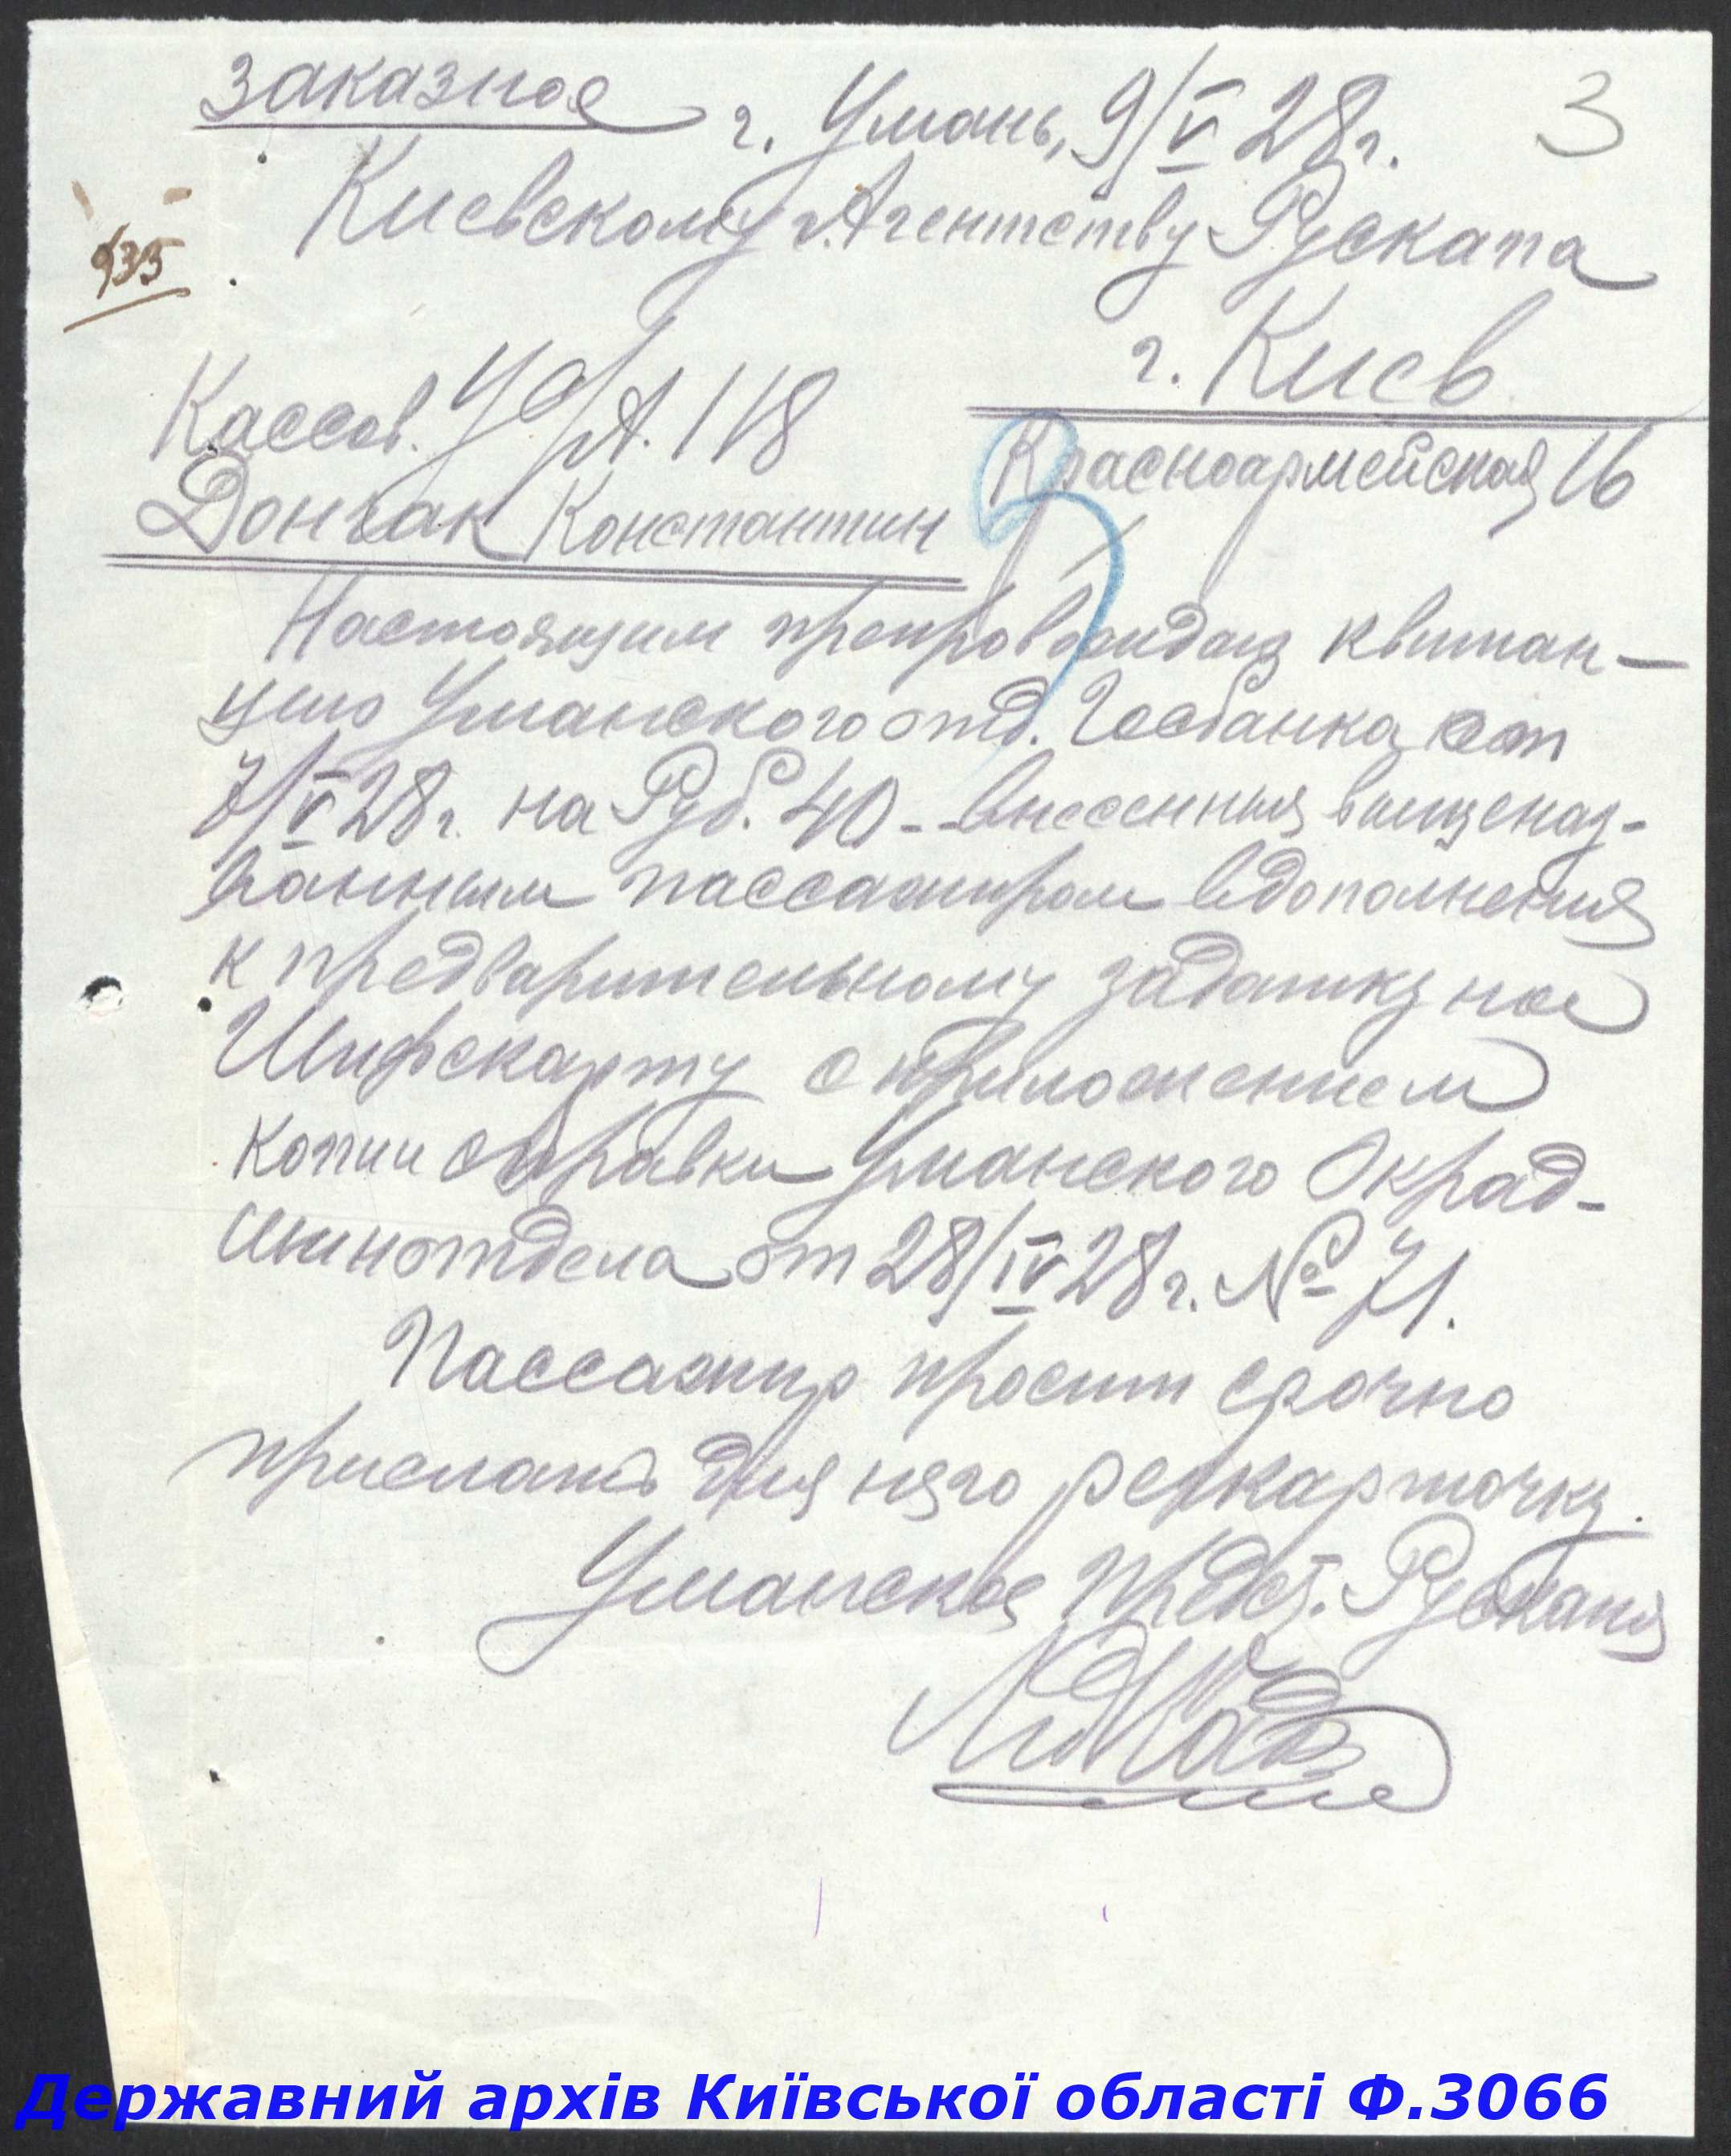 Заказное
г. Умань, 9/V 28 г.
3
Киевскому Агентству Рускапа
935
г. Киев
Кассов. А. 118
Красноармейская 16
Дончак Константин
Настоящим препровождаю квитан-
цию Уманского отд. Госбанка от
7/V 28 г. на Руб. 40 -- внесенныя вышеназ-
ванным пассажиром в дополнения
к предварительному задатку на
Шифскарту с приложением
копии справки Уманского Окрад-
минотдела от 28/IV 28 г. № 71.
Пассажир просит срочно
прислать для него регкарточку.
Уманское Предст. Рускапа
Державний архів Київської області Ф.3066